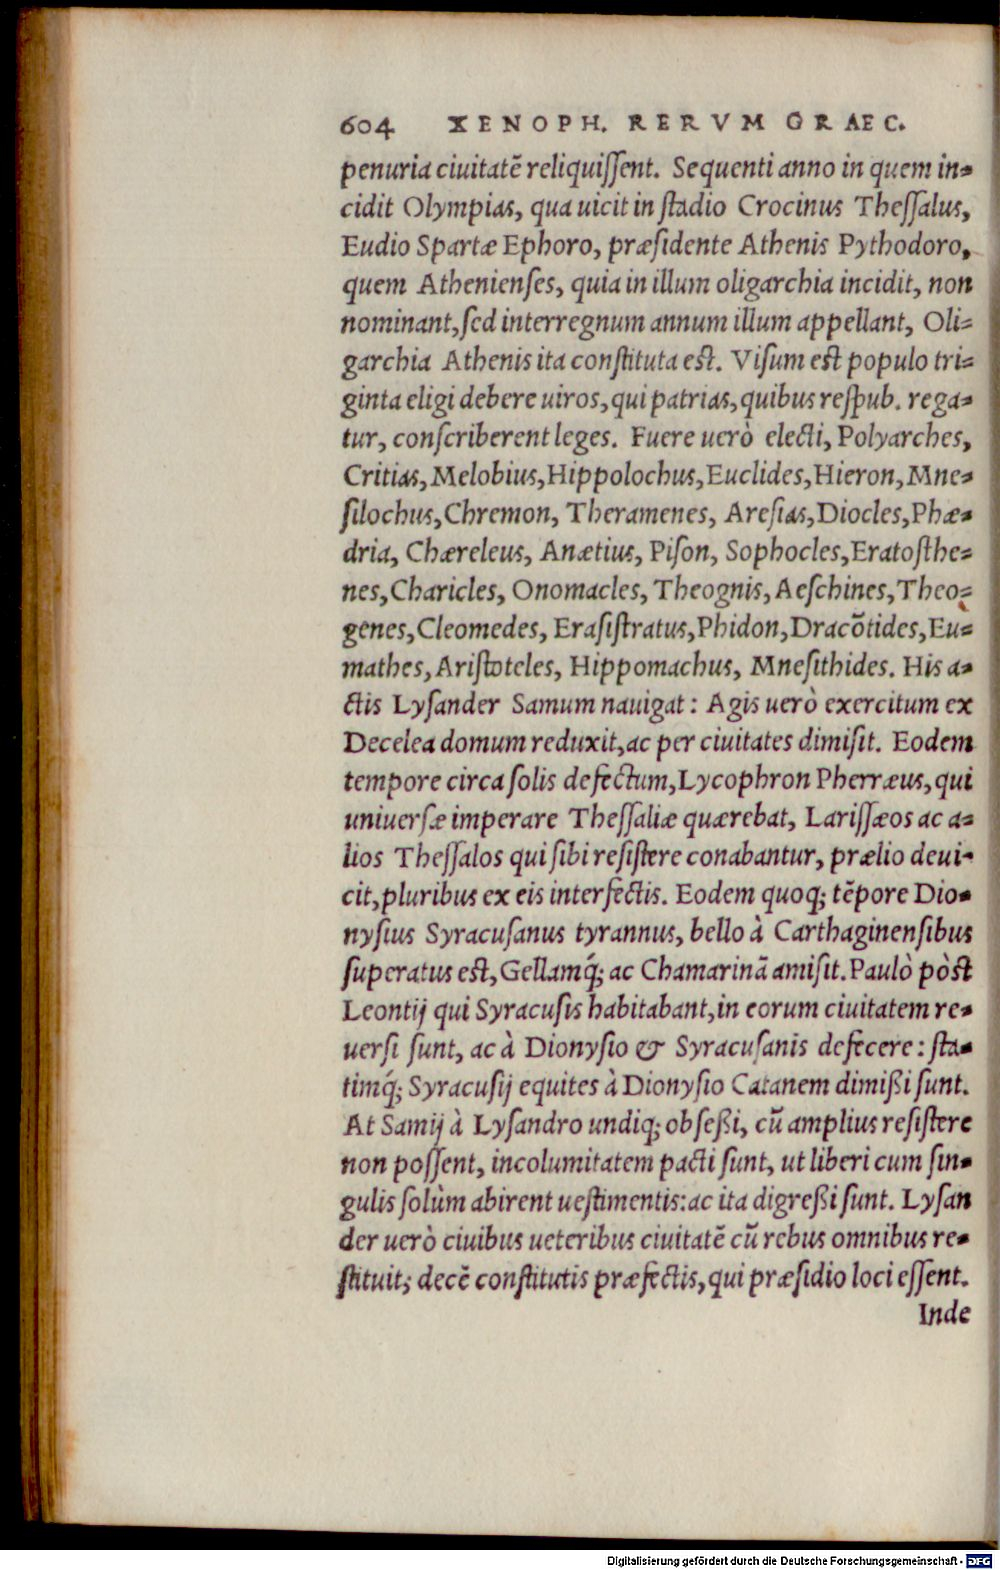 604 XENOPH. RERVM GRAEC.
penuria ciuitatẽ reliquiſſent. Sequenti anno in quem in-
cidit Olympias, qua uicit in ſtadio Crocinus Theſſalus,
Eudio Spartæ Ephoro, præſidente Athenis Pythodoro,
quem Athenienſes, quia in illum oligarchia incidit, non
nominant, ſed interregnum annum illum appellant, Oli-
garchia Athenis ita conſtituta eſt. Viſum eſt populo tri-
ginta eligi debere uiros, qui patrias, quibus reſpub. rega-
tur, conſcriberent leges. Fuere uerò electi, Polyarches,
Critias, Melobius, Hippolochus, Euclides, Hieron, Mne-
ſilochus, Chremon, Theramenes, Areſias, Diocles, Phæ-
dria, Chæreleus, Anætius, Piſon, Sophocles, Eratoſthe-
nes, Charicles, Onomacles, Theognis, Aeſchines, Theo-
genes, Cleomedes, Eraſiſtratus, Phidon, Dracõtides, Eu-
mathes, Ariſtoteles, Hippomachus, Mneſithides. His a-
ctis Lyſander Samum nauigat: Agis uerò exercitum ex
Decelea domum reduxit, ac per ciuitates dimiſit. Eodem
tempore circa ſolis defectum, Lycophron Pherræus, qui
uniuerſæ imperare Theſſaliæ quærebat, Lariſſæos ac a-
lios Theſſalos qui ſibi reſiſtere conabantur, prælio deui-
cit, pluribus ex eis interfectis. Eodem quoq; tẽpore Dio-
nyſius Syracuſanus tyrannus, bello à Carthaginenſibus
ſuperatus eſt, Gellamq́; ac Chamarinã amiſit. Paulò pòſt
Leontij qui Syracuſis habitabant, in eorum ciuitatem re-
uerſi ſunt, ac à Dionyſio & Syracuſanis defecere: ſta-
timq́; Syracuſij equites à Dionyſio Catanem dimißi ſunt.
At Samij à Lyſandro undiq; obſeßi, cũ amplius reſiſtere
non poſſent, incolumitatem pacti ſunt, ut liberi cum ſin-
gulis ſolùm abirent ueſtimentis: ac ita digreßi ſunt. Lyſan
der uerò ciuibus ueteribus ciuitatẽ cũ rebus omnibus re-
ſtituit; decẽ conſtitutis præfectis, qui præſidio loci eſſent.
Inde
Digitalisierung gefördert durch die Deutsche Forschungsgemeinschaft - DFG